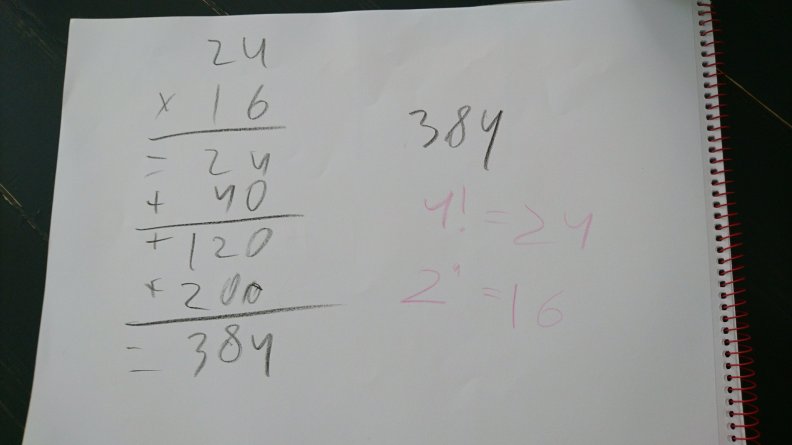 24
× 16
= 24
+ 40
+ 120
+ 200
= 384
384
4! = 24
2⁴ = 16